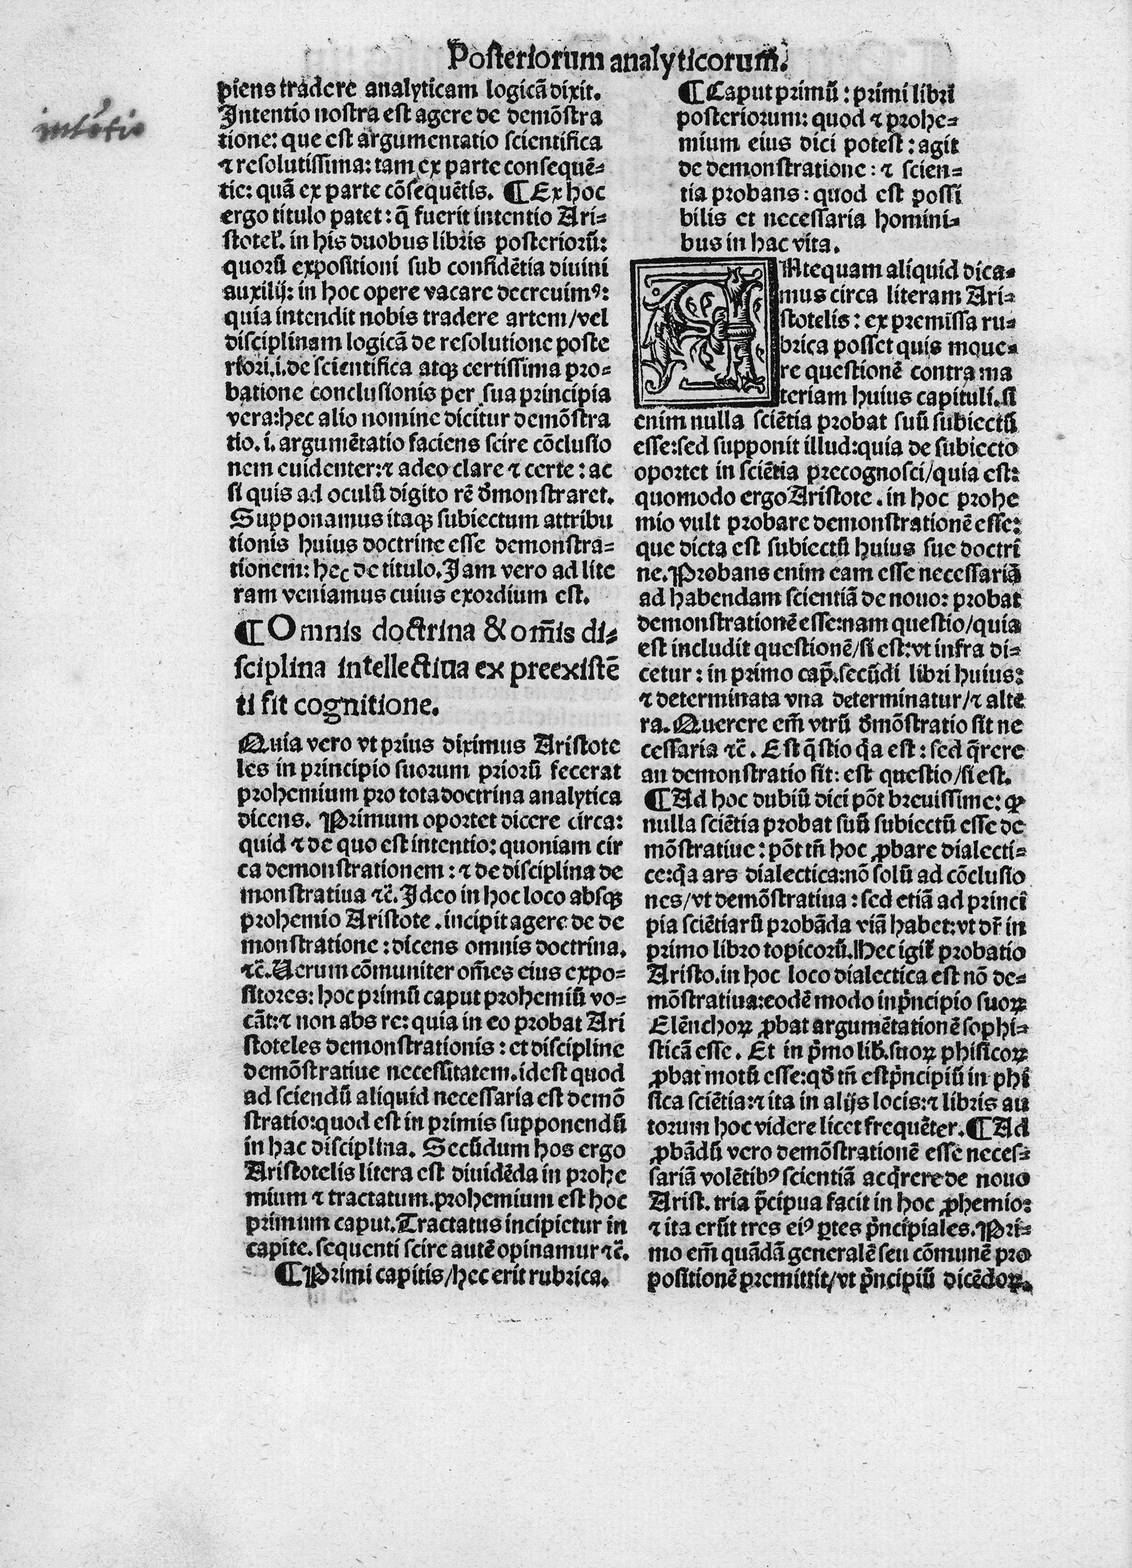 Posteriorum analyticorum̃.
intẽtio
piens tradere analyticam logicã dixit.
Intentio nostra est agere de demõstra
tione: que est argumentatio scientifica
⁊ resolutissima: tam ex parte consequẽ⸗
tie: quã ex parte cõsequẽtis. ¶Ex hoc
ergo titulo patet: q̃ fuerit intentio Ari⸗
stotel̃. in his duobus libris posteriorũ:
quorũ expositioni sub confidẽtia diuini
auxilij: in hoc opere vacare decreuimꝰ:
quia intendit nobis tradere artem/vel
disciplinam logicã de resolutione poste
riori.i.de scientifica atqꝫ certissima pro⸗
batione conclusionis per sua principia
vera:hec alio nomine dicitur demõstra
tio. i. argumẽtatio faciens scire cõclusio
nem euidenter:⁊ adeo clare ⁊ certe: ac
si quis ad oculũ digito rẽ d̃monstraret.
Supponamus itaqꝫ subiectum attribu
tionis huius doctrine esse demonstra⸗
tionem: hec de titulo. Iam vero ad lite
ram veniamus cuius exordium est.
¶Omnis doctrina & om̃is di⸗
sciplina intellectiua ex preexistẽ
ti fit cognitione.
Quia vero vt prius diximus Aristote
les in principio suorum priorũ fecerat
prohemium pro tota doctrina analytica
dicens. Primum oportet dicere circa:
quid ⁊ de quo est intentio: quoniam cir
ca demonstrationem: ⁊ de disciplina de
monstratiua ⁊c̃. Ideo in hoc loco absqꝫ
prohemio Aristote. incipit agere de de
monstratione: dicens omnis doctrina.
⁊c̃. Uerum cõmuniter om̃es eius expo⸗
sitores: hoc primũ caput prohemiũ vo⸗
cãt:⁊ non abs re: quia in eo probat Ari
stoteles demonstrationis: et discipline
demõstratiue necessitatem. idest quod
ad sciendũ aliquid necessaria est demõ
stratio:quod est in primis supponendũ
in hac disciplina. Secũdum hos ergo
Aristotelis litera est diuidẽda in prohe
mium ⁊ tractatum.prohemium est hoc
primum caput.Tractatus incipietur in
capite. sequenti scire autẽ opinamur ⁊c̃.
¶Primi capitis/hec erit rubrica.
¶Caput primũ: primi libri
posteriorum: quod ⁊ prohe⸗
mium eius dici potest: agit
de demonstratione: ⁊ scien⸗
tia probans: quod est possi
bilis et necessaria homini⸗
bus in hac vita.
ANtequam aliquid dica⸗
mus circa literam Ari⸗
stotelis: ex premissa ru⸗
brica posset quis moue⸗
re questionẽ contra ma
teriam huius capituli.si
enim nulla sciẽtia probat suũ subiectũ
esse:sed supponit illud:quia de subiecto
oportet in sciẽtia precognosci/quia est:
quomodo ergo Aristote. in hoc prohe
mio vult probare demonstrationẽ esse:
que dicta est subiectũ huius sue doctri
ne.Probans enim eam esse necessariã
ad habendam scientiã de nouo: probat
demonstrationẽ esse:nam questio/quia
est includit questionẽ/si est:vt infra di⸗
cetur: in primo cap̃.secũdi libri huius:
⁊ determinata vna determinatur/⁊ alte
ra. Querere em̃ vtrũ d̃mõstratio sit ne
cessaria ⁊c̃. Est q̃stio q̃a est: sed q̃rere
an demonstratio sit: est questio/si est.
¶Ad hoc dubiũ dici põt breuissime: ꝙ
nulla sciẽtia probat suũ subiectũ esse de
mõstratiue: põt tñ hoc ꝓbare dialecti⸗
ce:q̃a ars dialectica:nõ solũ ad cõclusio
nes/vt demõstratiua: sed etiã ad princi
pia sciẽtiarũ probãda viã habet:vt dr̃ in
primo libro topicorũ.Hec igit̃ probatio
Aristo.in hoc loco dialectica est nõ de⸗
mõstratiua:eodẽ modo in p̃ncipio suoꝝ
Elẽnchoꝝ ꝓbat argumẽtationẽ sophi⸗
sticã esse. Et in p̃mo lib̃.suoꝝ phisicoꝝ
ꝓbat motũ esse:qd̃ tñ est p̃ncipiũ in phi
sica sciẽtia:⁊ ita in alijs locis:⁊ libris au
torum hoc videre licet frequẽter.¶Ad
ꝓbãdũ vero demõstrationẽ esse neces⸗
sariã volẽtibꝰ scientiã acq̃rere de nouo
Arist. tria p̃cipua facit in hoc ꝓhemio:
⁊ ita erũt tres eiꝰ ꝑtes p̃ncipiales.Pri⸗
mo em̃ quãdã generalẽ seu cõmunẽ pro
positionẽ premittit/vt p̃ncipiũ dicẽdoꝝ.